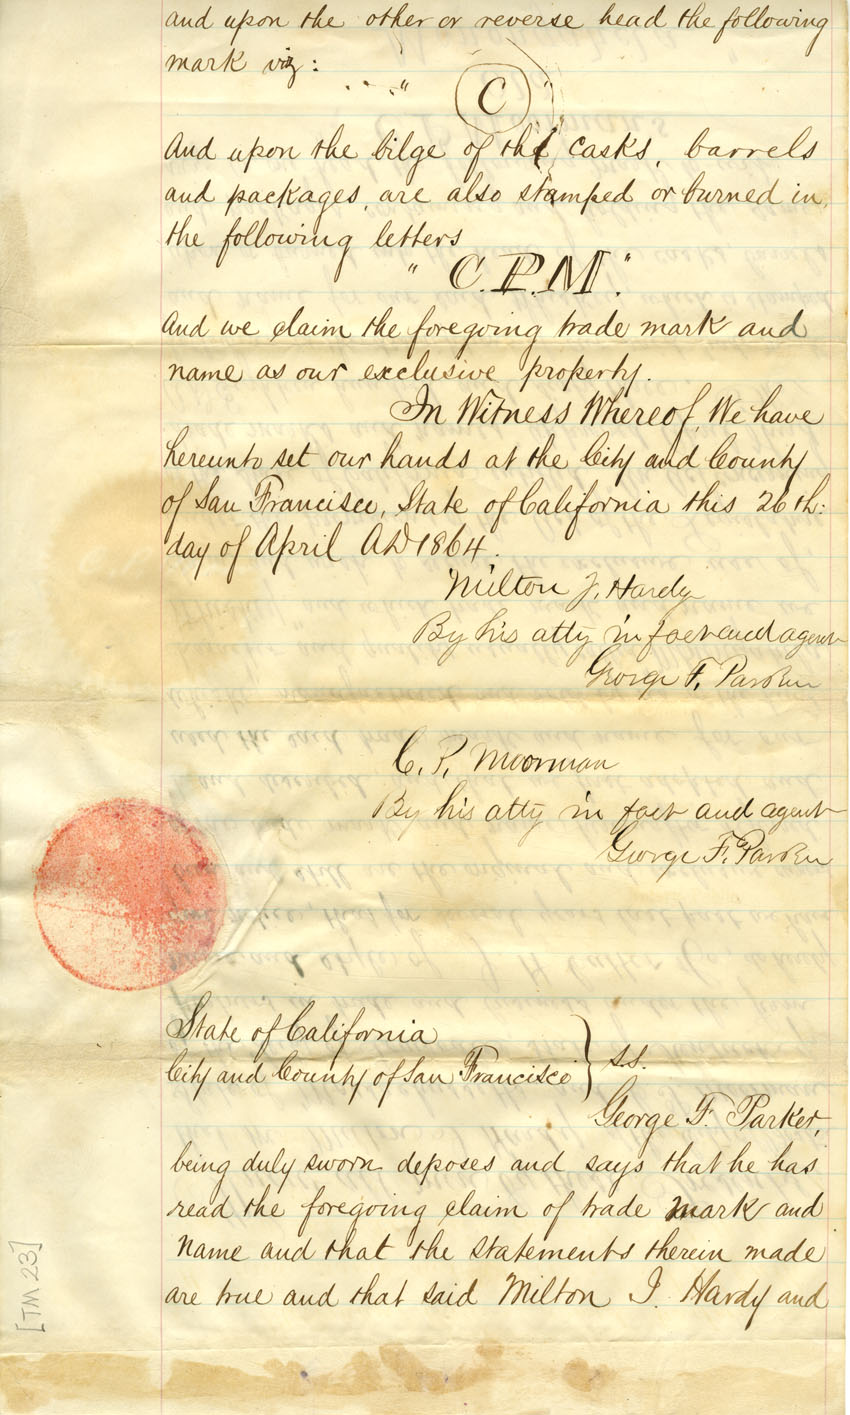 and upon the other or reverse head the following
mark viz:
" C "
And upon the bilge of the casks, barrels
and packages, are also stamped or burned in
the following letters
" C.P.M."
And we claim the foregoing trade mark and
name as our exclusive property.
In Witness Whereof, We have
hereunto set our hands at the City and County
of San Francisco, State of California this 26th:
day of April AD 1864.
Milton J. Hardy
By his atty in fact and agent
George F. Parker
C. P. Moorman
By his atty in fact and agent
George F. Parker
State of California
City and County of San Francisco } S.S.
George F. Parker,
being duly sworn deposes and says that he has
read the foregoing claim of trade mark and
name and that the statements therein made
are true and that said Milton J. Hardy and
[TM 23]